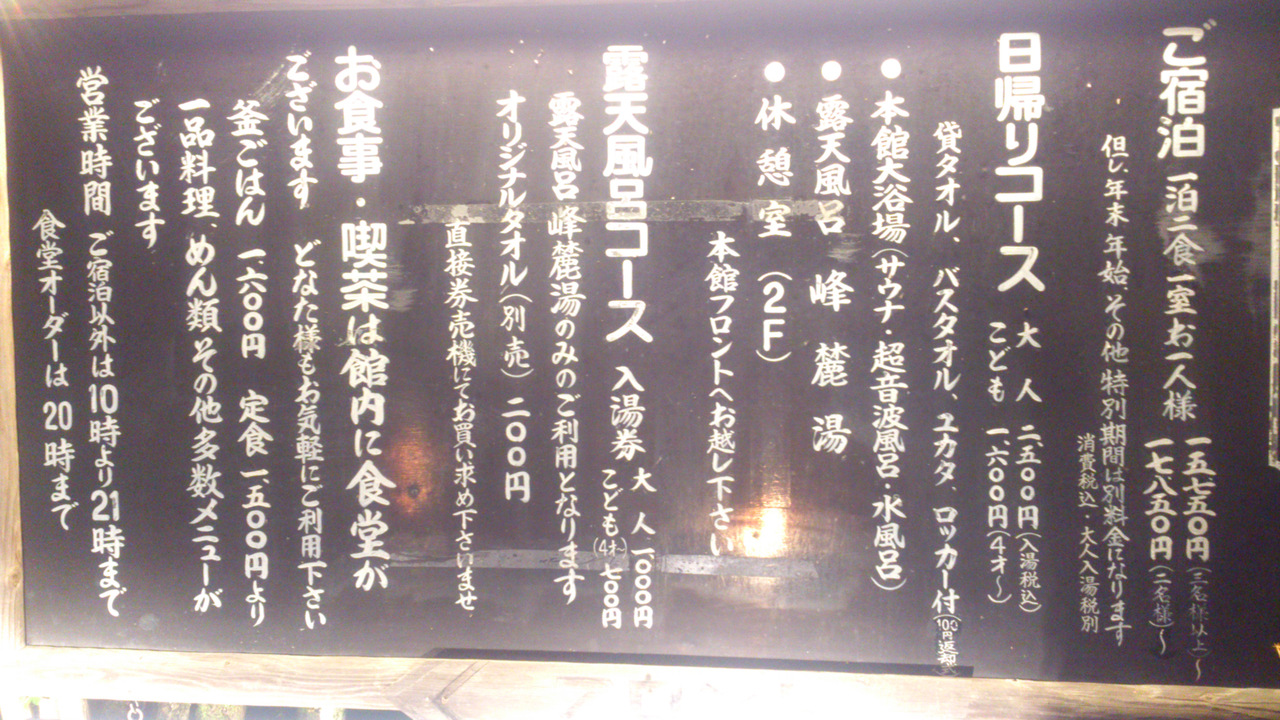 ご宿泊 一泊二食一室お一人様
一五七五〇円(三名様以上)~
一七八五〇円(二名様)~
但し、年末年始、その他特別期間は別料金になります
消費税込・大人入湯税別
日帰りコース
大人 二、五〇〇円(入湯税込)
こども 一、六〇〇円(4才~)
貸タオル、バスタオル、ユカタ、ロッカー付(100円返却式)
●本館大浴場(サウナ・超音波風呂・水風呂)
●露天風呂 峰麓湯
●休憩室(2F)
本館フロントへお越し下さい
露天風呂コース 入湯券
大人 一、〇〇〇円
こども(4才~) 七〇〇円
露天風呂 峰麓湯のみのご利用となります
オリジナルタオル(別売)二〇〇円
直接券売機にてお買い求め下さいませ
お食事・喫茶は館内に食堂が
ございます どなた様もお気軽にご利用下さい
釜ごはん 一、六〇〇円 定食 一、五〇〇円より
一品料理、めん類その他多数メニューが
ございます
営業時間 ご宿泊以外は10時より21時まで
食堂オーダーは20時まで